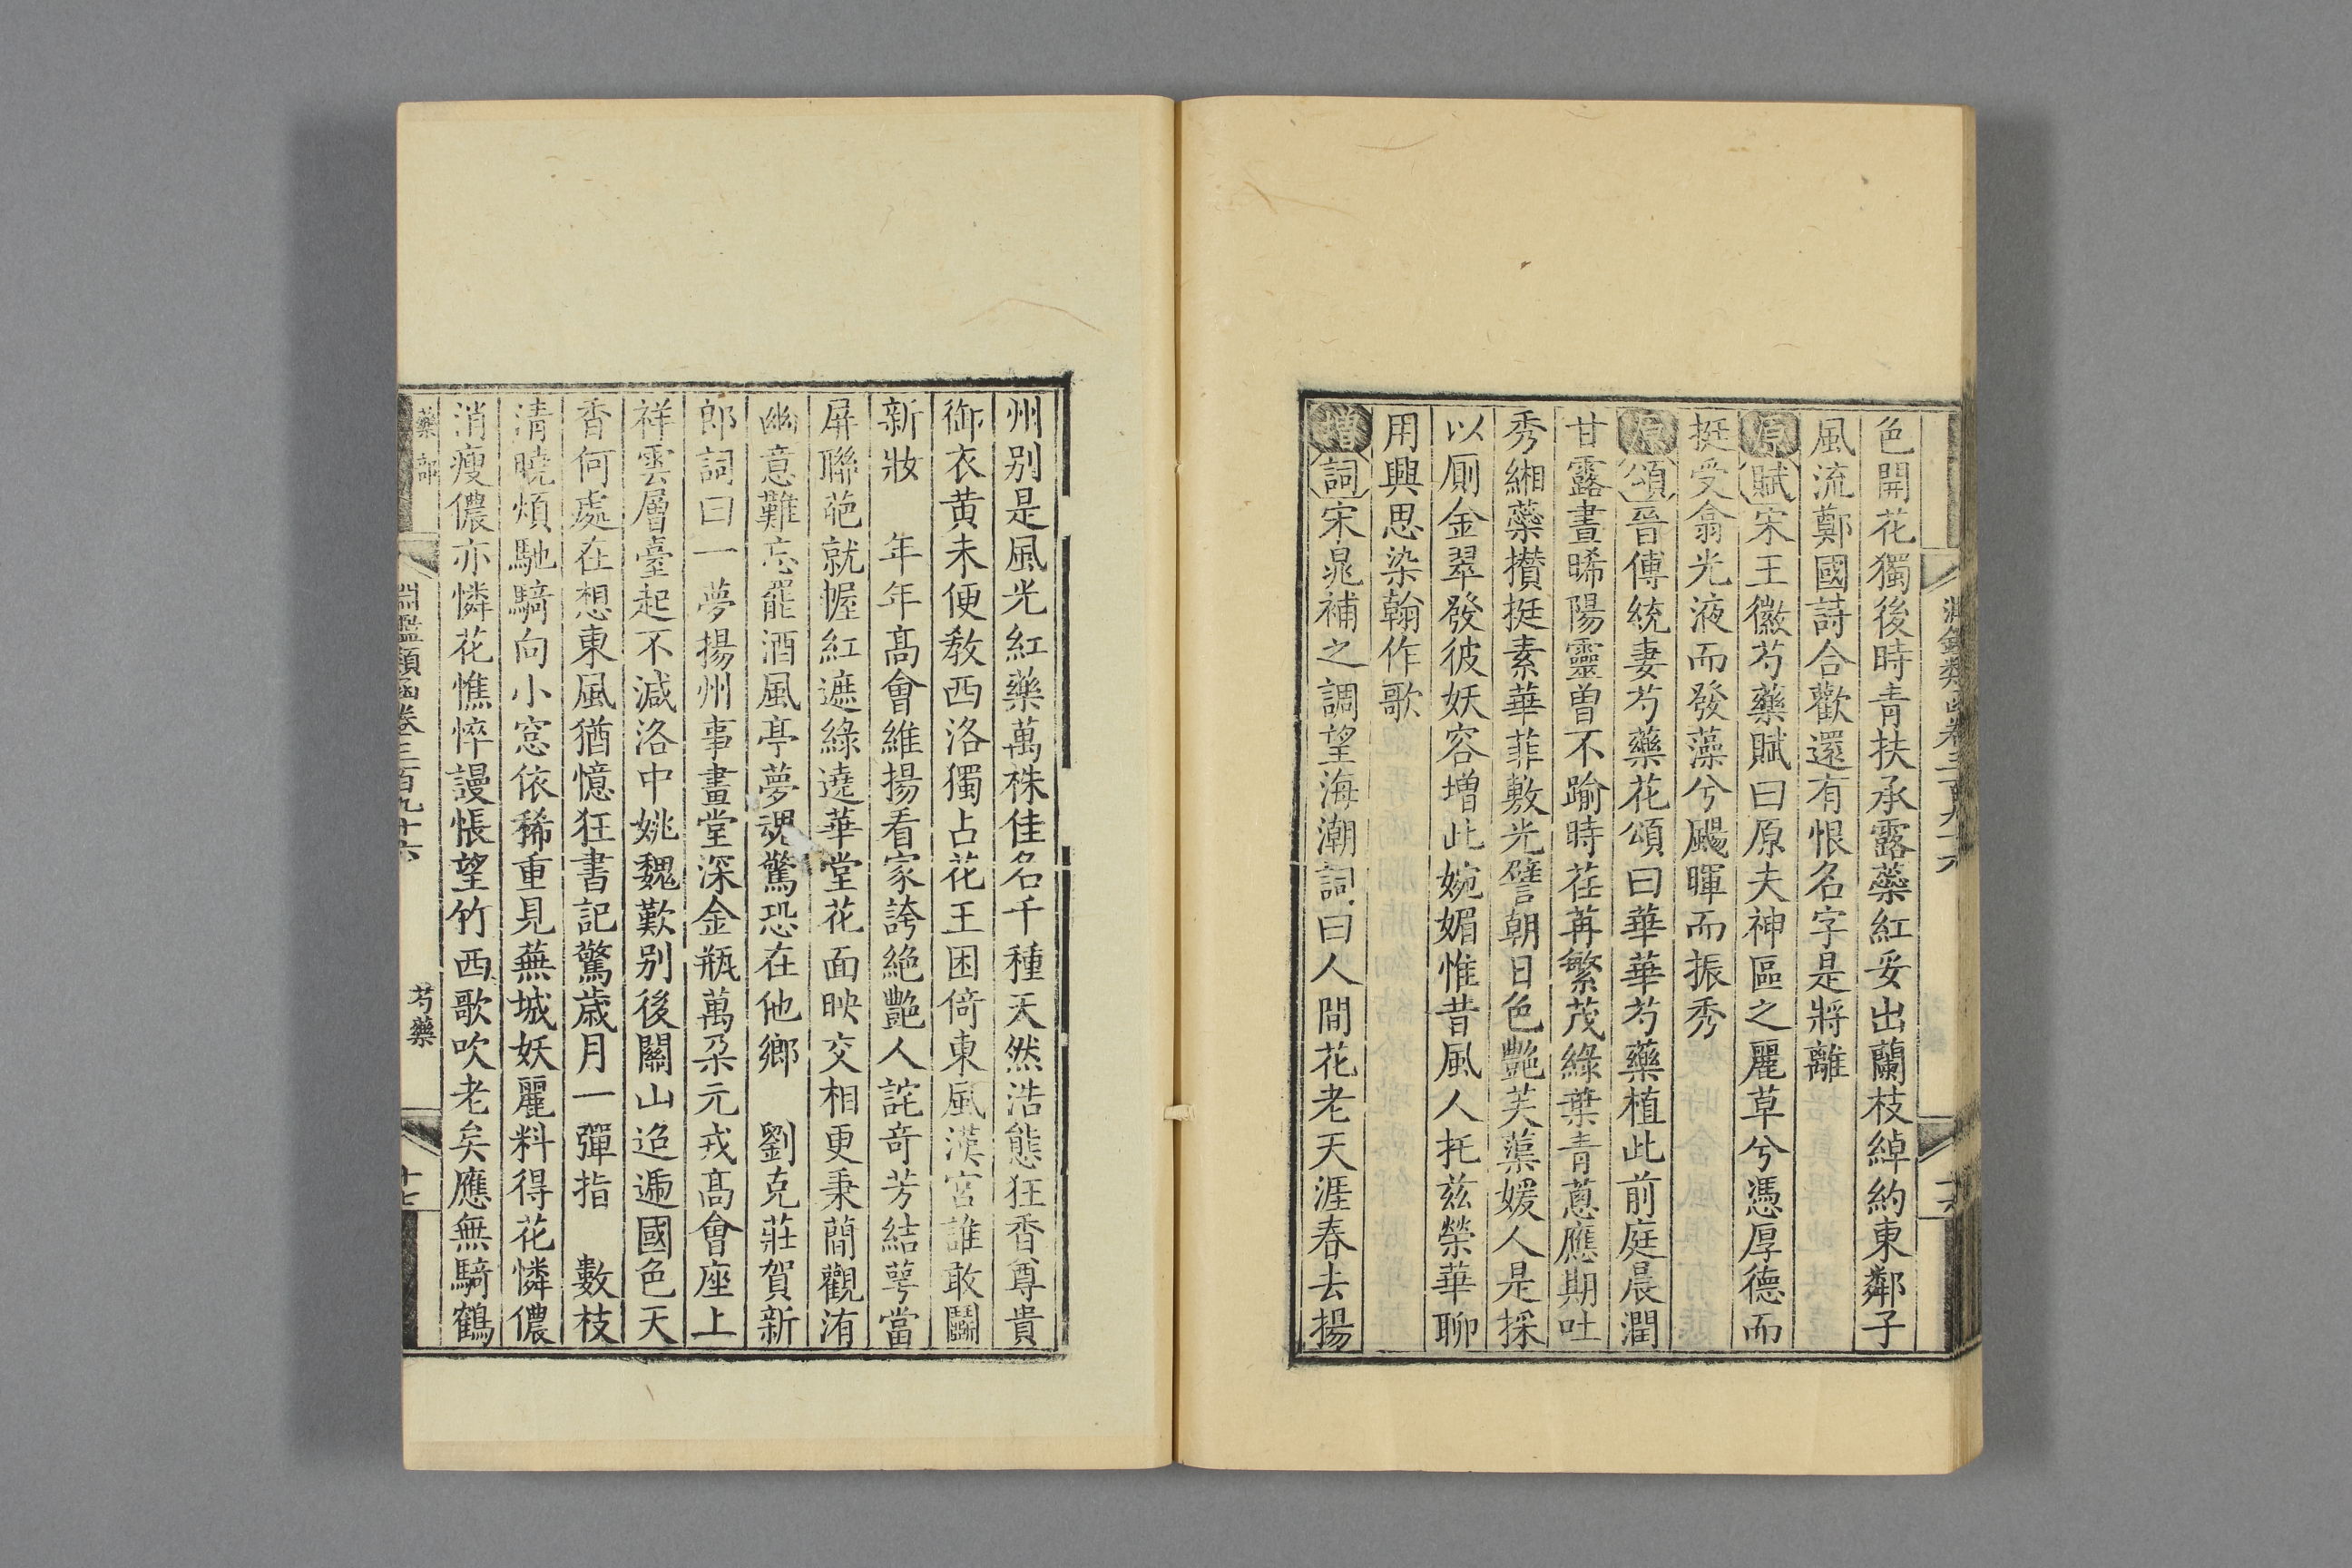 色開花獨後時青扶承露蘂紅妥出蘭枝綽約東鄰子
風流鄭國詩合歡還有恨名字是將離
原賦宋王徽芍藥賦曰原夫神區之麗草兮憑厚德而
挺受翕光液而發藻兮颺暉而振秀
原頌晉傅統妻芍藥花頌曰華華芍藥植此前庭晨潤
甘露晝晞陽靈曽不踰時荏苒繁茂綠葉青蔥應期吐
秀緗蘂攢挺素華菲敷光譬朝日色艷芙蕖媛人是採
以廁金翠發彼妖容增此婉媚惟昔風人托兹榮華聊
用興思染翰作歌
增詞宋晁補之調望海潮詞曰人間花老天涯春去揚
州别是風光紅藥萬株佳名千種天然浩態狂香尊貴
御衣黄未便教西洛獨占花王困倚東風漢宮誰敢鬭
新妝　年年髙會維揚看家誇絶艷人詫竒芳結蕚當
屏聯葩就幄紅遮綠遶華堂花面映交相更秉蕳觀洧
幽意難忘罷酒風亭夢魂驚恐在他鄉　劉克莊賀新
郎詞曰一夢揚州事畫堂深金瓶萬朶元戎髙會座上
祥雲層臺起不減洛中姚魏歎别後關山迢遞國色天
香何處在想東風猶憶狂書記驚歲月一彈指　數枝
清曉煩馳騎向小窓依稀重見蕪城妖麗料得花憐儂
消瘦儂亦憐花憔悴謾悵望竹西歌吹老矣應無騎鶴
藥部　淵鑑類函卷三百九十六　芍藥　十七